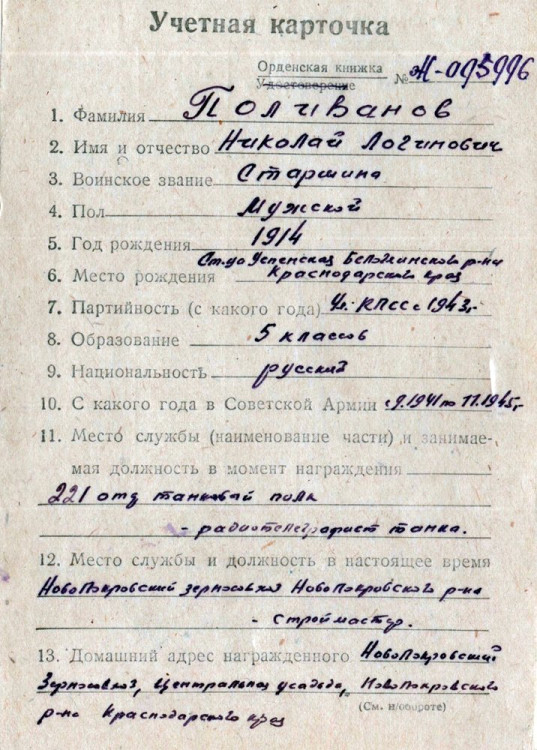 Учетная карточка
Орденская книжка
Удостоверение № Ж-095996
1. Фамилия Поливанов
2. Имя и отчество Николай Логинович
3. Воинское звание Старшина
4. Пол Мужской
5. Год рождения 1914
Ст-ца Успенская Белоглинского р-на
6. Место рождения Краснодарский край
7. Партийность (с какого года) Чл. КПСС с 1943г.
8. Образование 5 классов
9. Национальность русский
10. С какого года в Советской Армии с 9.1941 по 11.1945г.
11. Место службы (наименование части) и занимае-
мая должность в момент награждения
221 отд танковый полк
- радиотелеграфист танка.
12. Место службы и должность в настоящее время
НовоПокровский зерносовхоз НовоПокровского р-на
- строймастер.
13. Домашний адрес награжденного НовоПокровский
Зерносовхоз, Центральная усадьба, НовоПокровского
(См. н/обороте)
р-на Краснодарского края